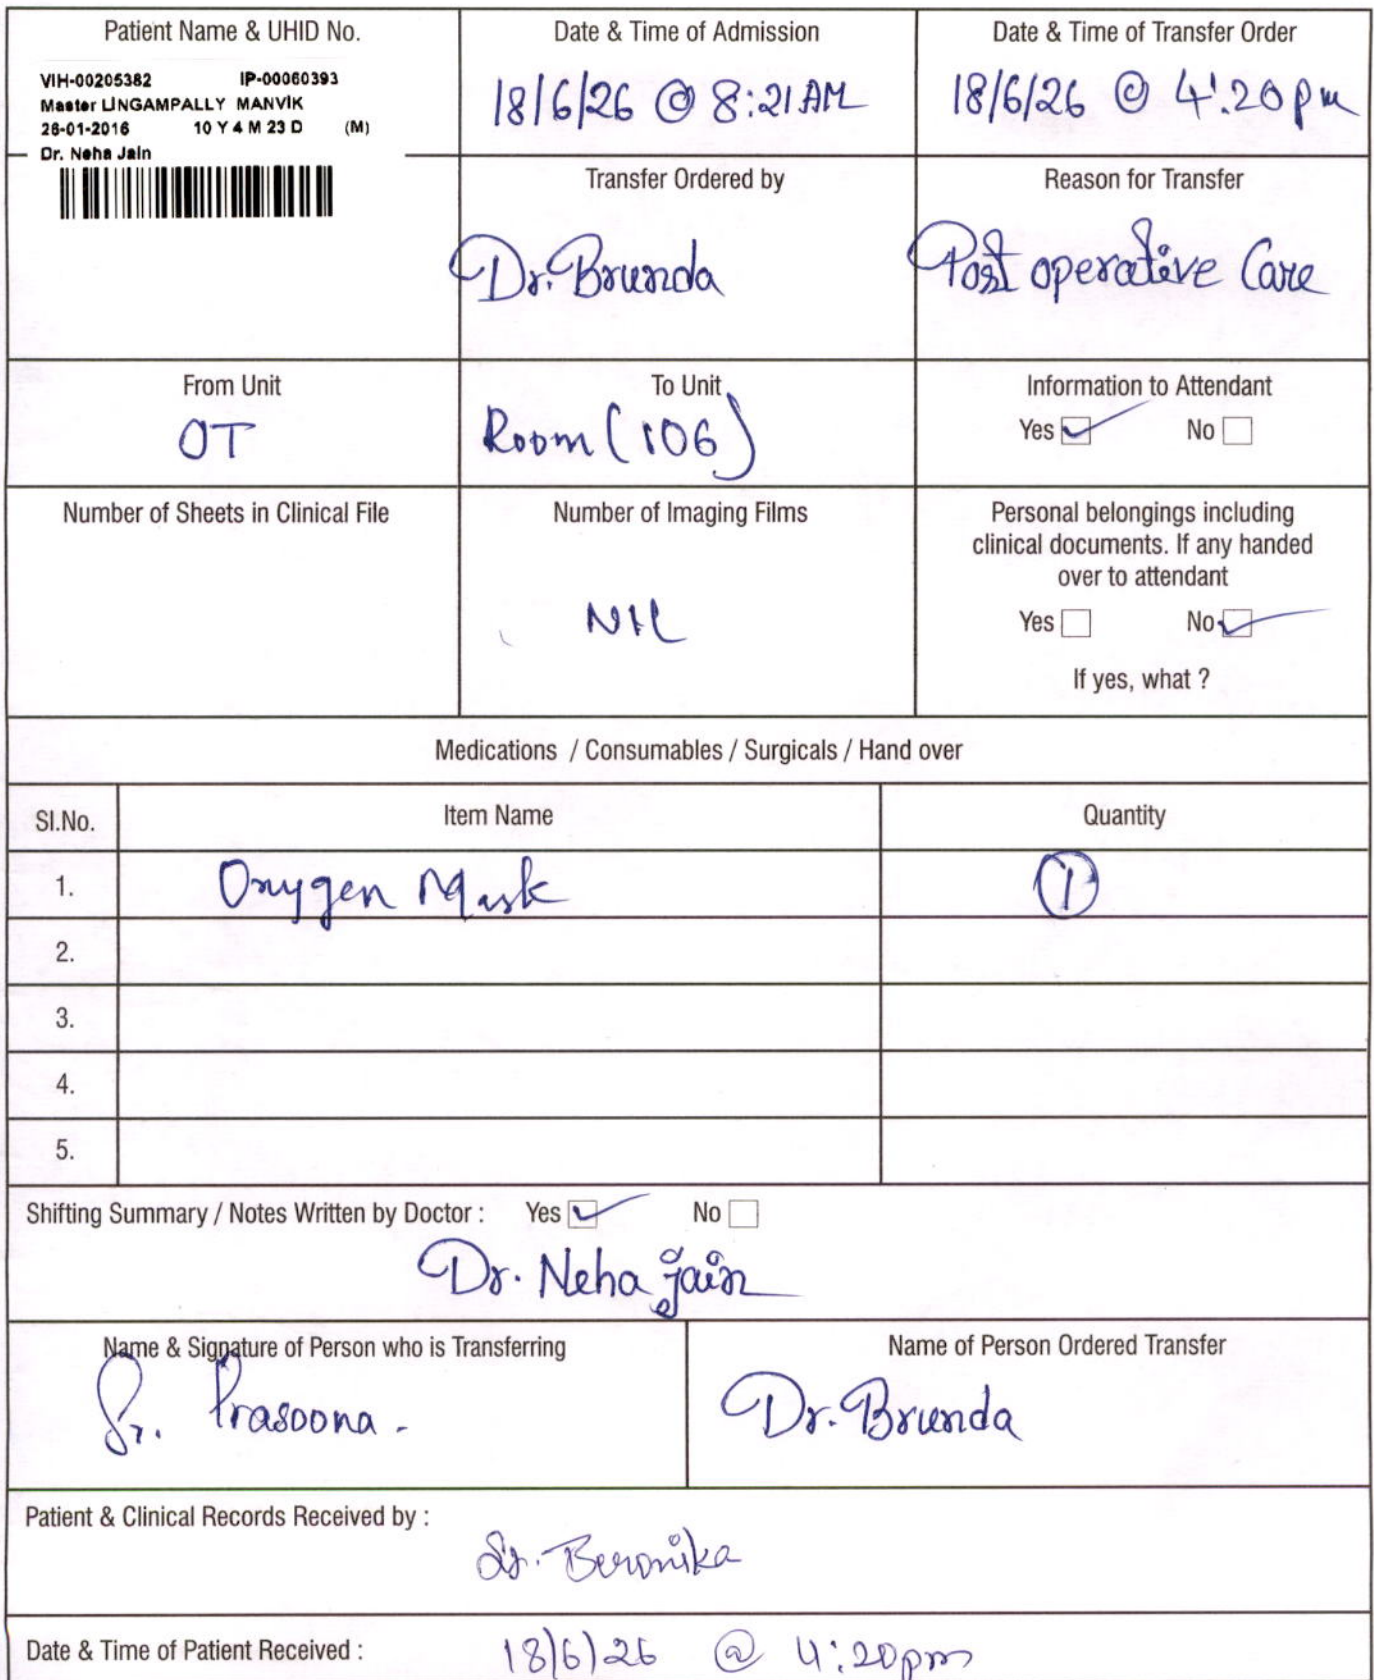 Patient Name & UHID No.
VIH-00205382 IP-00060393
Master LINGAMPALLY MANVIK
26-01-2016 10 Y 4 M 23 D (M)
Dr. Neha Jain
Date & Time of Admission
18/6/26 @ 8:21 AM
Date & Time of Transfer Order
18/6/26 @ 4:20 pm
Transfer Ordered by
Dr. Brunda
Reason for Transfer
Post operative Care
From Unit
OT
To Unit
Room (106)
Information to Attendant
Yes ☑ No ☐
Number of Sheets in Clinical File
Number of Imaging Films
NIL
Personal belongings including
clinical documents. If any handed
over to attendant
Yes ☐ No ☑
If yes, what ?
Medications / Consumables / Surgicals / Hand over
Sl.No. Item Name Quantity
1. Oxygen Mask 1
2.
3.
4.
5.
Shifting Summary / Notes Written by Doctor : Yes ☑ No ☐
Dr. Neha Jain
Name & Signature of Person who is Transferring
Sr. Prasoona.
Name of Person Ordered Transfer
Dr. Brunda
Patient & Clinical Records Received by :
Sr. Beronika
Date & Time of Patient Received : 18/6/26 @ 4:20pm